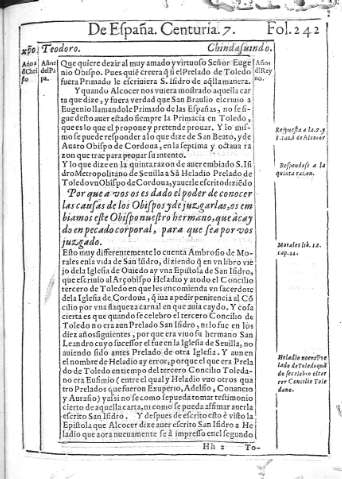 De España. Centuria. 7. Fol. 242
xpõ. Teodoro. Chindasuindo.
Años de Christo
Años del Papa.
Años del Rey no.
Que quiere dezir al muy amado y virtuoso Señor Euge
nio Obispo. Pues quiẽ creera q̃ si el Prelado de Toledo
fuera Primado le escriuiera S. Isidro de aq̃lla manera.
Y quando Alcocer nos vuiera mostrado aquella car
ta que dize, y fuera verdad que San Braulio escriuio a
Eugenio llamandole Primado de las Españas, no se si
gue desto auer estado siempre la Primacia en Toledo,
que es lo que el propone y pretende prouar. Y lo mis
mo se puede responder a lo que dize de San Beato, y de
Aluaro Obispo de Cordoua, en la septima y octaua ra
zon que trae para prouar su intento.
Y lo que dize en la quinta razon de auer embiado S. Isi
dro Metropolitano de Seuilla a Sã Heladio Prelado de
Toledo vn Obispo de Cordoua, y auerle escrito diziẽdo
Por que a vos os es dado el poder de conocer
las causas de los Obispos y de juzgarlas, os em
biamos este Obispo nuestro hermano, que à cay
do en pecado corporal, para que sea por vos
juzgado.
Esto muy diferentemente lo cuenta Ambrosio de Mo-
rales en la vida de San Isidro, diziendo q̃ en vn libro vie
jo de la Iglesia de Ouiedo ay vna Epistola de San Isidro,
que escriuio al Arçobispo Heladio y atodo el Concilio
tercero de Toledo en que les encomienda vn sacerdote
de la Iglesia de Cordoua, q̃ iua a pedir penitencia al Cõ
cilio por vna flaqueza carnal en que auia caydo. Y cosa
cierta es que quando se celebro el tercero Concilio de
Toledo no era aun Prelado San Isidro, ni lo fue en los
diez años siguientes, por que era viuo su hermano San
Leandro cuyo sucessor el fue en la Iglesia de Seuilla, no
auiendo sido antes Prelado de otra Iglesia. Y aun en
el nombre de Heladio ay error, porque el que era Prela
do de Toledo en tiempo del tercero Concilio Toleda-
no era Eufimio (entre el qual y Heladio vuo otros qua
tro Prelados que fueron Exuperio, Adelfio, Conancio
y Aurasio) y assi no se como se pueda tomar testimonio
cierto de aquella carta, ni como se pueda afirmar auerla
escrito San Isidro. Y despues de escrito esto è visto la
Epistola que Alcocer dize auer escrito San Isidro a He
ladio que aora nueuamente se à impresso en el segundo
Respuesta a la 7. y
8. razõ de Alcocer
Respondese a la
quinta razon.
Morales lib. 12.
cap. 21.
Heladio no era Pre
lado de Toledo quã
do se celebro el ter
cero Concilio Tole
dano.
Hh 2 To-